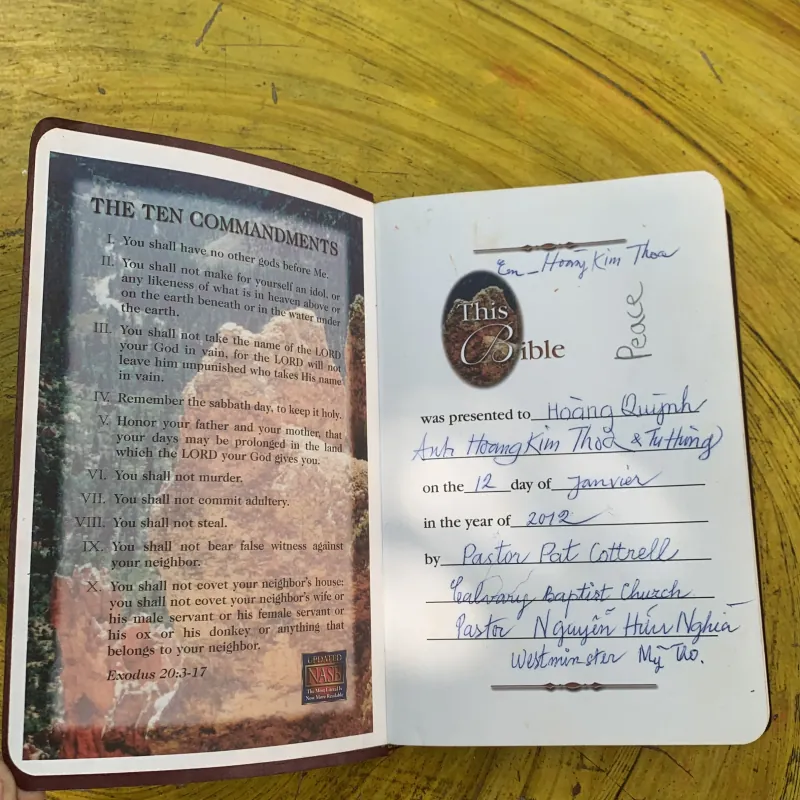 THE TEN COMMANDMENTS
I. You shall have no other gods before Me.
II. You shall not make for yourself an idol, or
any likeness of what is in heaven above or
on the earth beneath or in the water under
the earth.
III. You shall not take the name of the LORD
your God in vain, for the LORD will not
leave him unpunished who takes His name
in vain.
IV. Remember the sabbath day, to keep it holy.
V. Honor your father and your mother, that
your days may be prolonged in the land
which the LORD your God gives you.
VI. You shall not murder.
VII. You shall not commit adultery.
VIII. You shall not steal.
IX. You shall not bear false witness against
your neighbor.
X. You shall not covet your neighbor's house;
you shall not covet your neighbor's wife or
his male servant or his female servant or
his ox or his donkey or anything that
belongs to your neighbor.
Exodus 20:3-17
UPDATED
NASB
The Most Literal Is
Now More Readable
Em _ Hoàng Kim Thoa
Peace
This
Bible
was presented to Hoàng Quỳnh
Anh Hoang Kim Thoa & Tu Hùng)
on the 12 day of Janvier
in the year of 2012
by Pastor Pat Cottrell
Calvary Baptist Church
Pastor Nguyễn Hữu Nghĩa
Westminster Mỹ Tho.